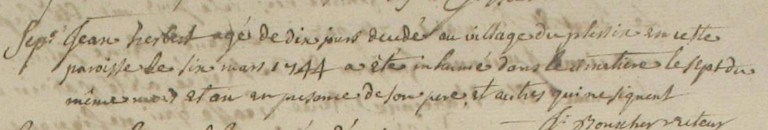 Sep.e Jean herbert agé de dix jours decedé au village du plessix en cette
paroisse le six mars 1744 a été inhumé dans le cimetiere le sept du
même mois et an en presence de son pere et autres qui ne signent
Bouscher recteur